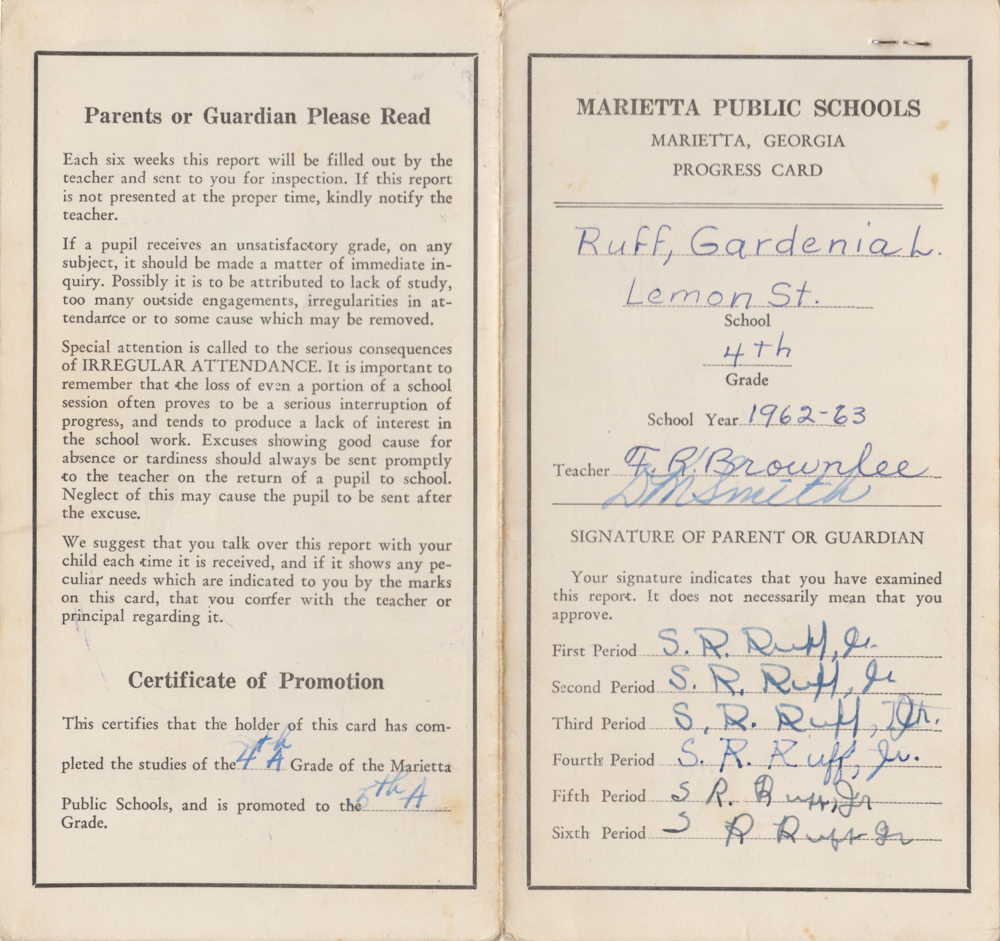 Parents or Guardian Please Read
Each six weeks this report will be filled out by the
teacher and sent to you for inspection. If this report
is not presented at the proper time, kindly notify the
teacher.
If a pupil receives an unsatisfactory grade, on any
subject, it should be made a matter of immediate in-
quiry. Possibly it is to be attributed to lack of study,
too many outside engagements, irregularities in at-
tendance or to some cause which may be removed.
Special attention is called to the serious consequences
of IRREGULAR ATTENDANCE. It is important to
remember that the loss of even a portion of a school
session often proves to be a serious interruption of
progress, and tends to produce a lack of interest in
the school work. Excuses showing good cause for
absence or tardiness should always be sent promptly
to the teacher on the return of a pupil to school.
Neglect of this may cause the pupil to be sent after
the excuse.
We suggest that you talk over this report with your
child each time it is received, and if it shows any pe-
culiar needs which are indicated to you by the marks
on this card, that you confer with the teacher or
principal regarding it.
Certificate of Promotion
This certifies that the holder of this card has com-
pleted the studies of the 4th A Grade of the Marietta
Public Schools, and is promoted to the 5th A
Grade.
MARIETTA PUBLIC SCHOOLS
MARIETTA, GEORGIA
PROGRESS CARD
Ruff, Gardenia L.
Lemon St.
School
4th
Grade
School Year 1962-63
Teacher F. R. Brownlee
D M Smith
SIGNATURE OF PARENT OR GUARDIAN
Your signature indicates that you have examined
this report. It does not necessarily mean that you
approve.
First Period S. R. Ruff, Jr.
Second Period S. R. Ruff, Jr
Third Period S. R. Ruff, Jr.
Fourth Period S. R. Ruff, Jr.
Fifth Period S R. Ruff, Jr
Sixth Period S R Ruff Jr